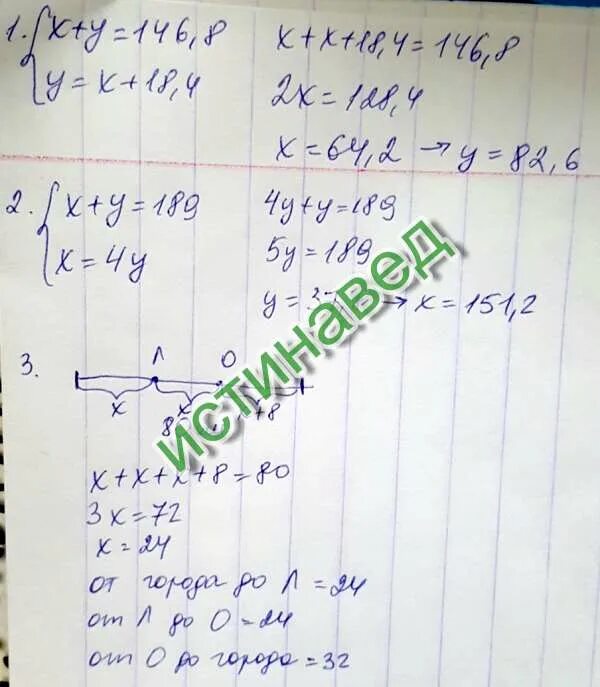 1. x+y=146,8
y=x+18,4
x+x+18,4=146,8
2x=128,4
x=64,2 → y=82,6
2. x+y=189
x=4y
4y+y=189
5y=189
y= → x=151,2
3.
Л О
x x
x+x+x+8=80
3x=72
x=24
от города до Л=24
от Л до О=24
от О до города=32
истинавед